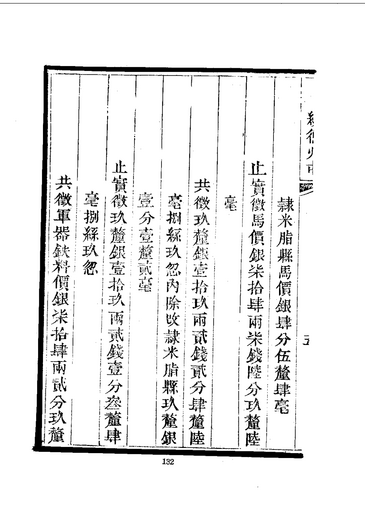 綏德州
五
隸米脂縣馬價銀肆分伍釐肆毫
止實徵馬價銀柒拾肆兩柒錢陸分玖釐陸
毫
共徵玖釐銀壹拾玖兩貳錢貳分肆釐陸
毫捌絲玖忽內除改隸米脂縣玖釐銀
壹分壹釐貳毫
止實徵玖釐銀壹拾玖兩貳錢壹分叁釐肆
毫捌絲玖忽
共徵軍器鈇料價銀柒拾肆兩貳分玖釐
132